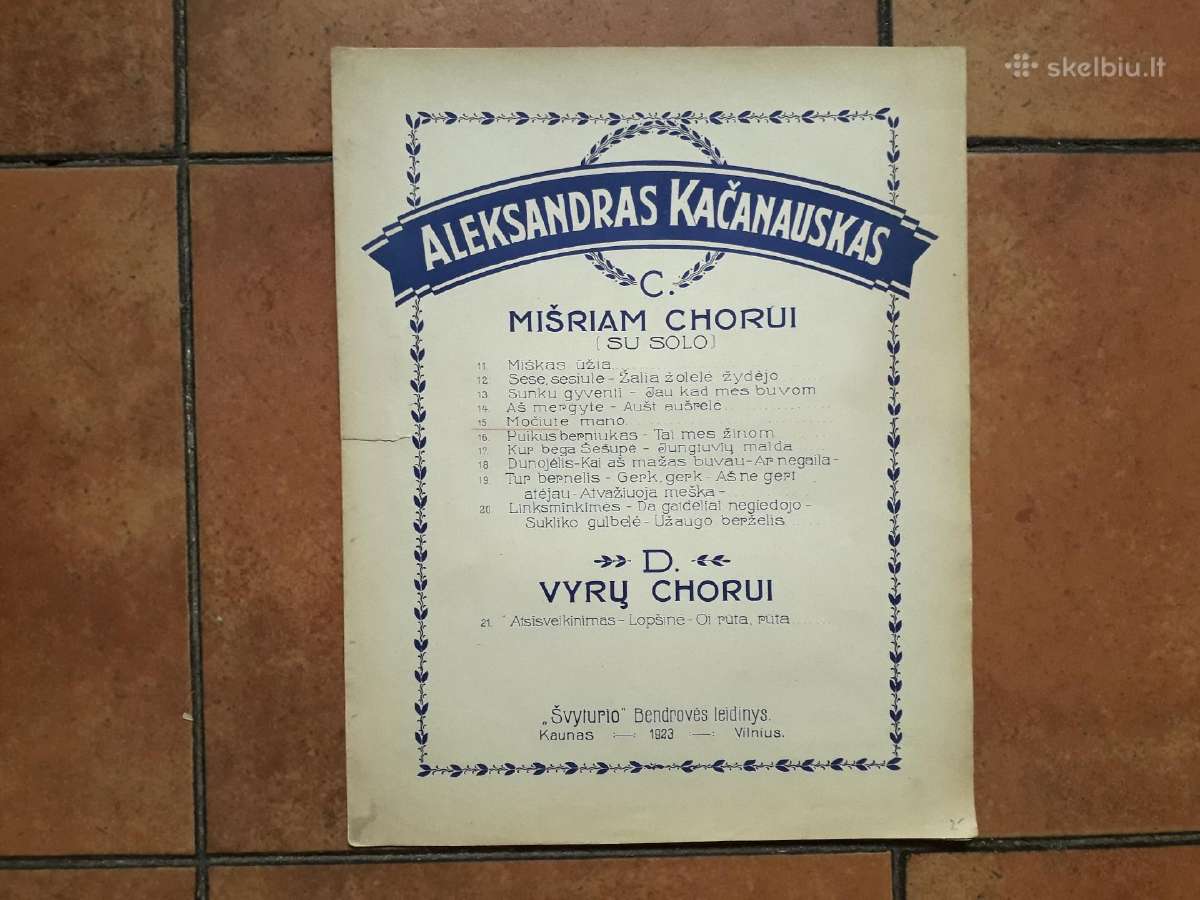 skelbiu.lt
ALEKSANDRAS KAČANAUSKAS
C.
MIŠRIAM CHORUI
(SU SOLO)
11. Miškas ūžia
12. Sese, sesiule - Žalia žolelė žydėjo
13. Sunku gyventi - Jau kad mes buvom
14. Aš mergytė - Aušt aušrelė
15. Močiute mano
16. Puikus berniukas - Tai mes žinom
17. Kur bega Šešupė - Jungtuvių malda
18. Dunojėlis - Kai aš mažas buvau - Ar negaila -
19. Tur bernelis - Gerk, gerk - Aš ne gert
atėjau - Atvažiuoja meška -
20. Linksminkimės - Da gaidėliai negiedojo -
Sukliko gulbelė - Užaugo berželis
D.
VYRŲ CHORUI
21. Atsisveikinimas - Lopšinė - Oi rūta, rūta
„Švyturio" Bendrovės leidinys.
Kaunas — 1923 — Vilnius.